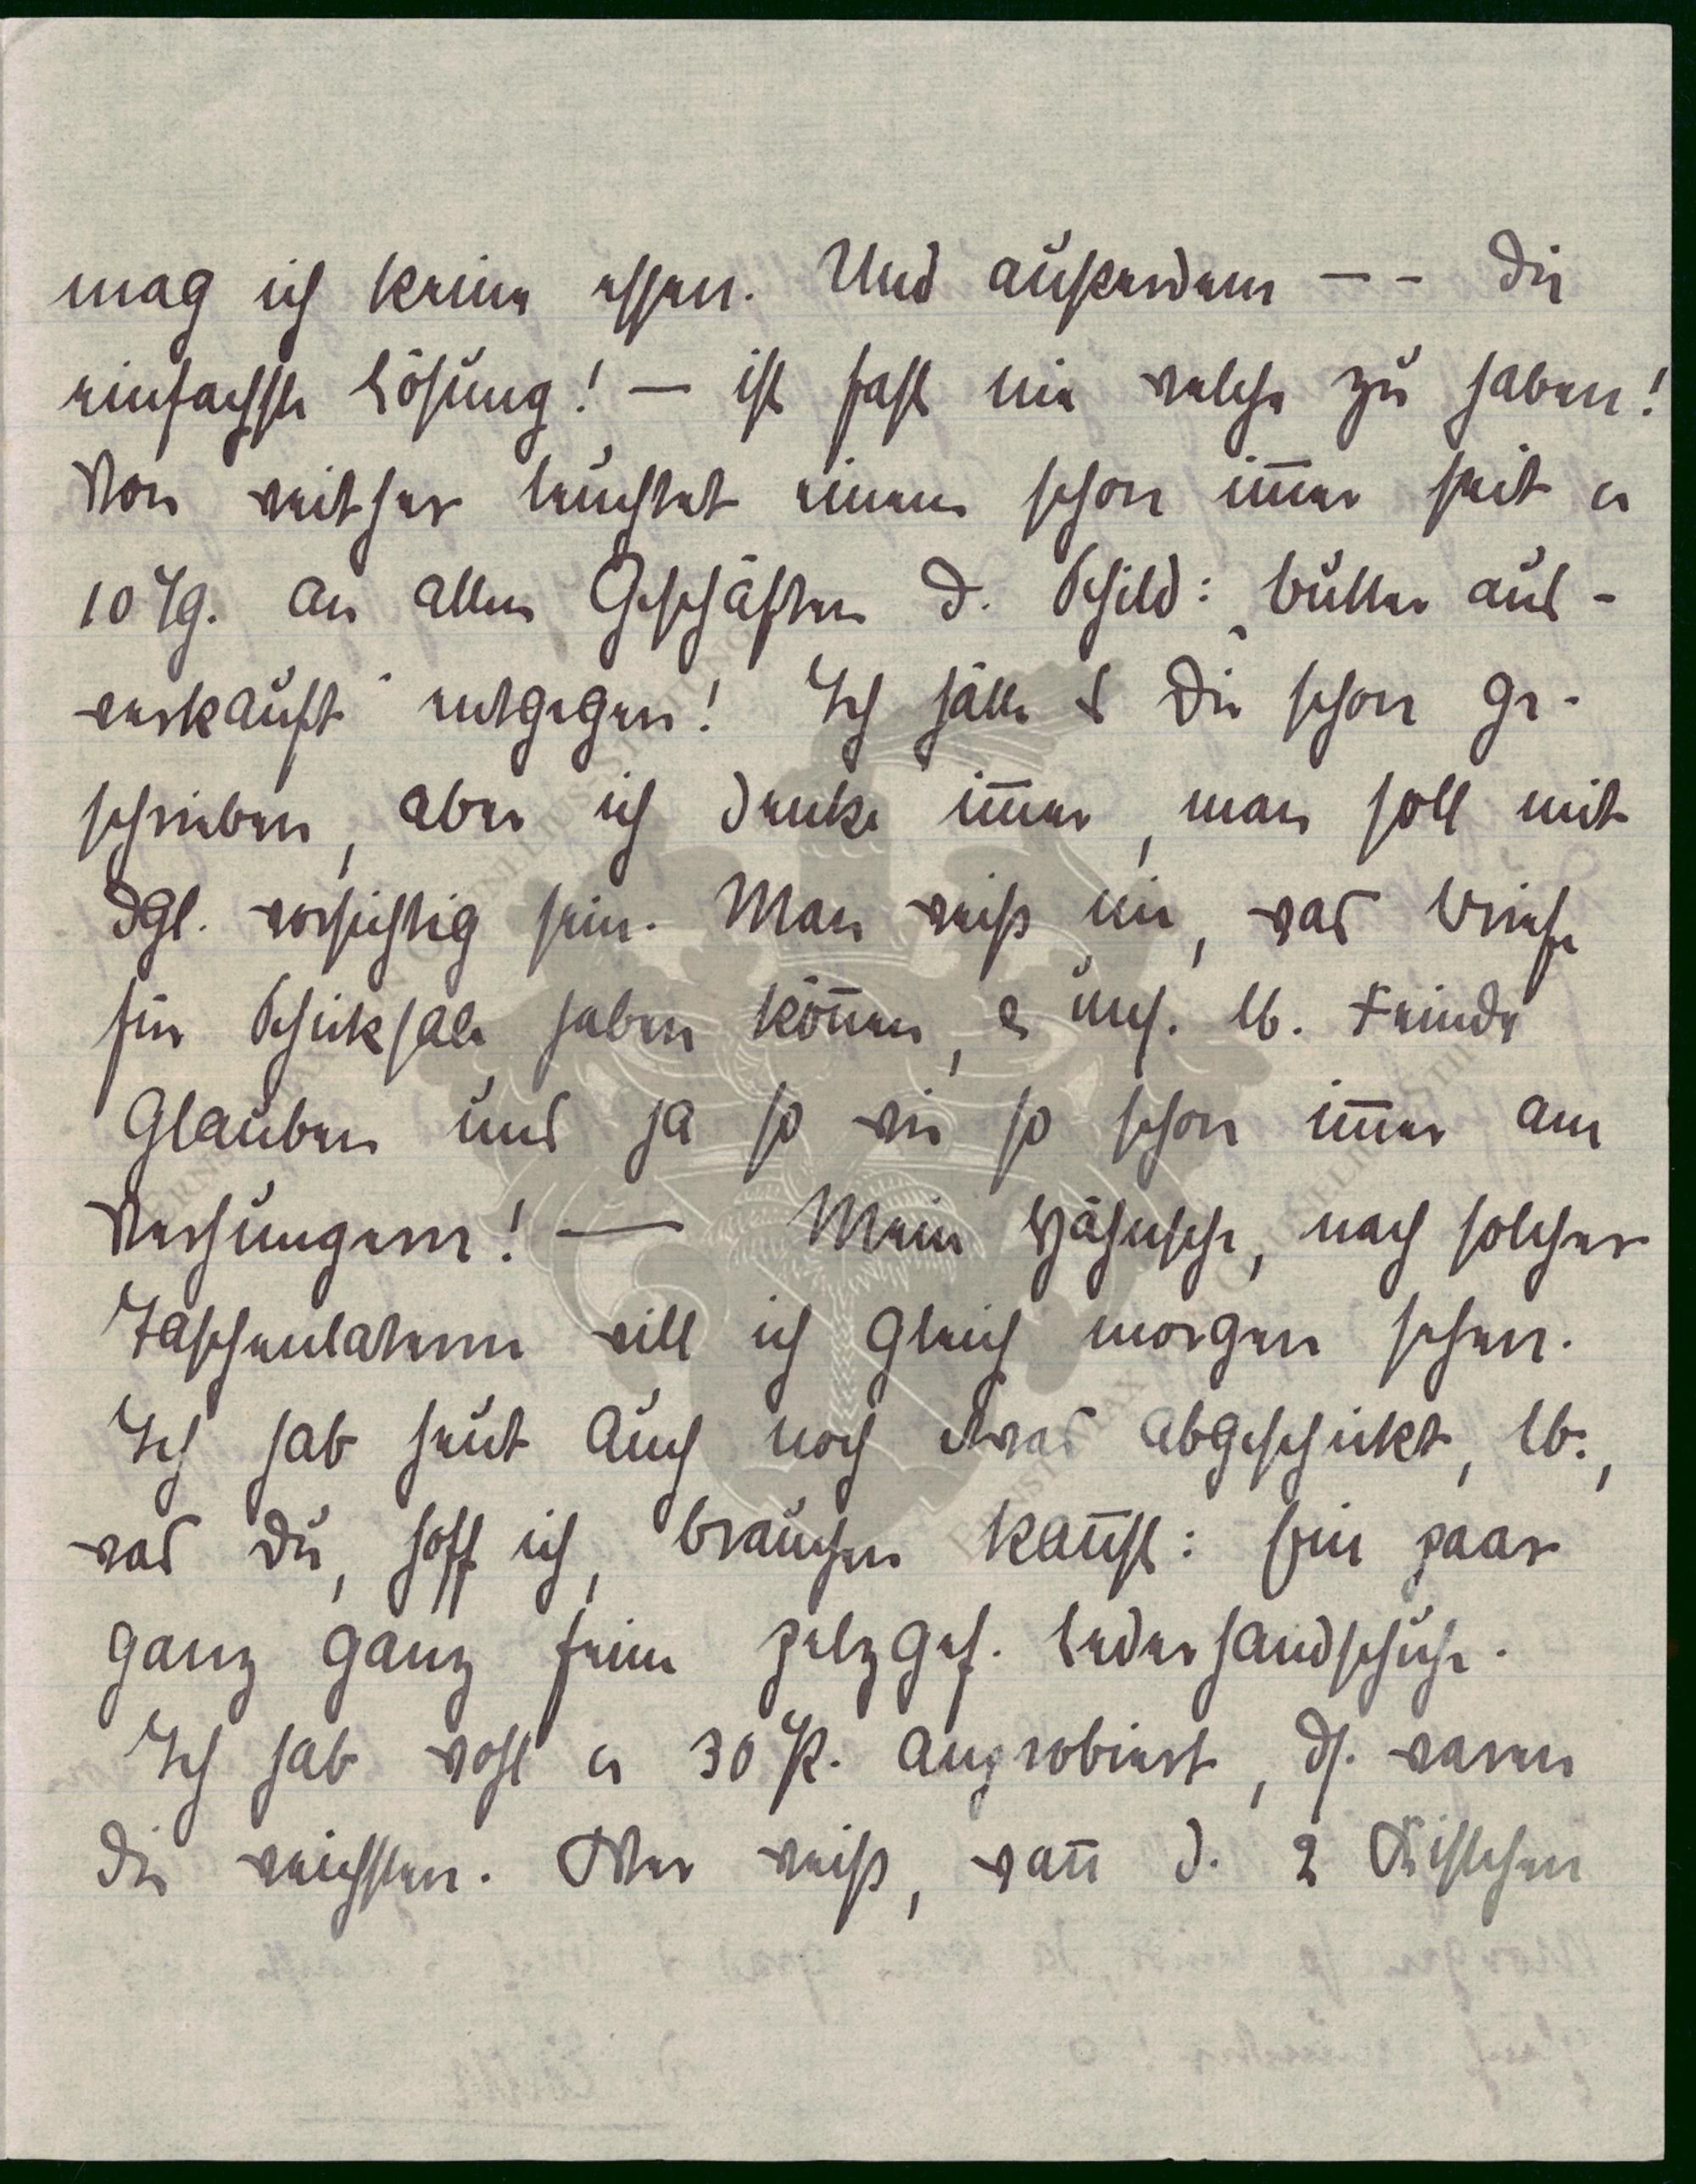 mag ich keine essen. Und außerdem – – die
einfachste Lösung! – ist fast nie welche zu haben!
Von weither leuchtet einem schon im̅er seit ca
10 Tg. an allen Geschäften d. Schild: „Butter aus-
verkauft“ entgegen! Ich hätte es Dir schon ge-
schrieben, aber ich denke im̅er, man soll mit
dgl. vorsichtig sein. Man weiß nie, was Briefe
für Schicksale haben kön̅en, u. uns. lb. Feinde
glauben uns ja so wie so schon im̅er am
Verhungern! — Mein Hähnsche, nach solcher
Taschenlaterne will ich gleich morgen sehen.
Ich hab heut auch noch etwas abgeschickt, lb.,
was Du, hoff ich, brauchen kan̅st: Ein paar
ganz ganz feine pelzgef. Lederhandschuhe.
Ich hab wohl ca 30 P. anprobiert, ds. waren
die weichsten. Wer weiß, wan̅ d. 2 Kistchen